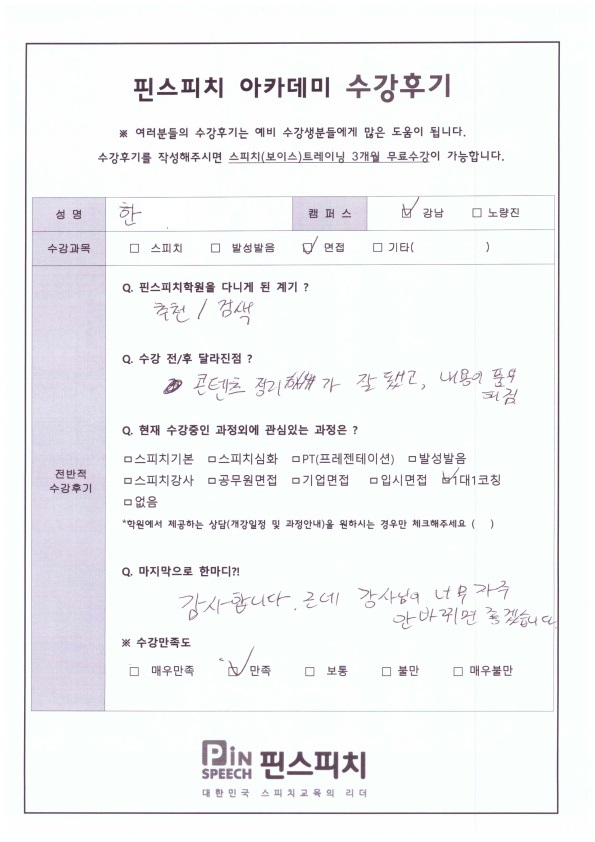 핀스피치 아카데미 수강후기
※ 여러분들의 수강후기는 예비 수강생분들에게 많은 도움이 됩니다.
수강후기를 작성해주시면 스피치(보이스)트레이닝 3개월 무료수강이 가능합니다.
성 명 한 캠 퍼 스 ☑ 강남 □ 노량진
수강과목 □ 스피치 □ 발성발음 ☑ 면접 □ 기타( )
Q. 핀스피치학원을 다니게 된 계기 ?
추천 / 검색
Q. 수강 전/후 달라진점 ?
콘텐츠 정리가 잘 됐고, 내용이 풍부
해짐
Q. 현재 수강중인 과정외에 관심있는 과정은 ?
□스피치기본 □스피치심화 □PT(프레젠테이션) □발성발음
전반적
수강후기
□스피치강사 □공무원면접 □기업면접 □입시면접 ☑1대1코칭
□없음
*학원에서 제공하는 상담(개강일정 및 과정안내)을 원하시는 경우만 체크해주세요 ( )
Q. 마지막으로 한마디?!
감사합니다. 근데 강사님이 너무 자주
안바뀌면 좋겠습니다.
※ 수강만족도
□ 매우만족 ☑ 만족 □ 보통 □ 불만 □ 매우불만
PiN
SPEECH 핀스피치
대한민국 스피치교육의 리더